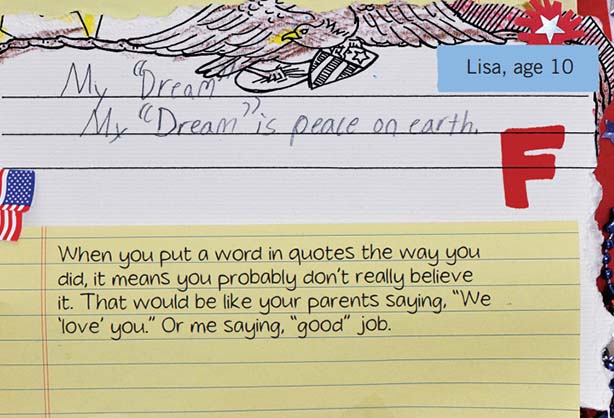 Lisa, age 10
My “Dream”
My “Dream” is peace on earth.
F
When you put a word in quotes the way you
did, it means you probably don’t really believe
it. That would be like your parents saying, “We
‘love’ you.” Or me saying, “good” job.